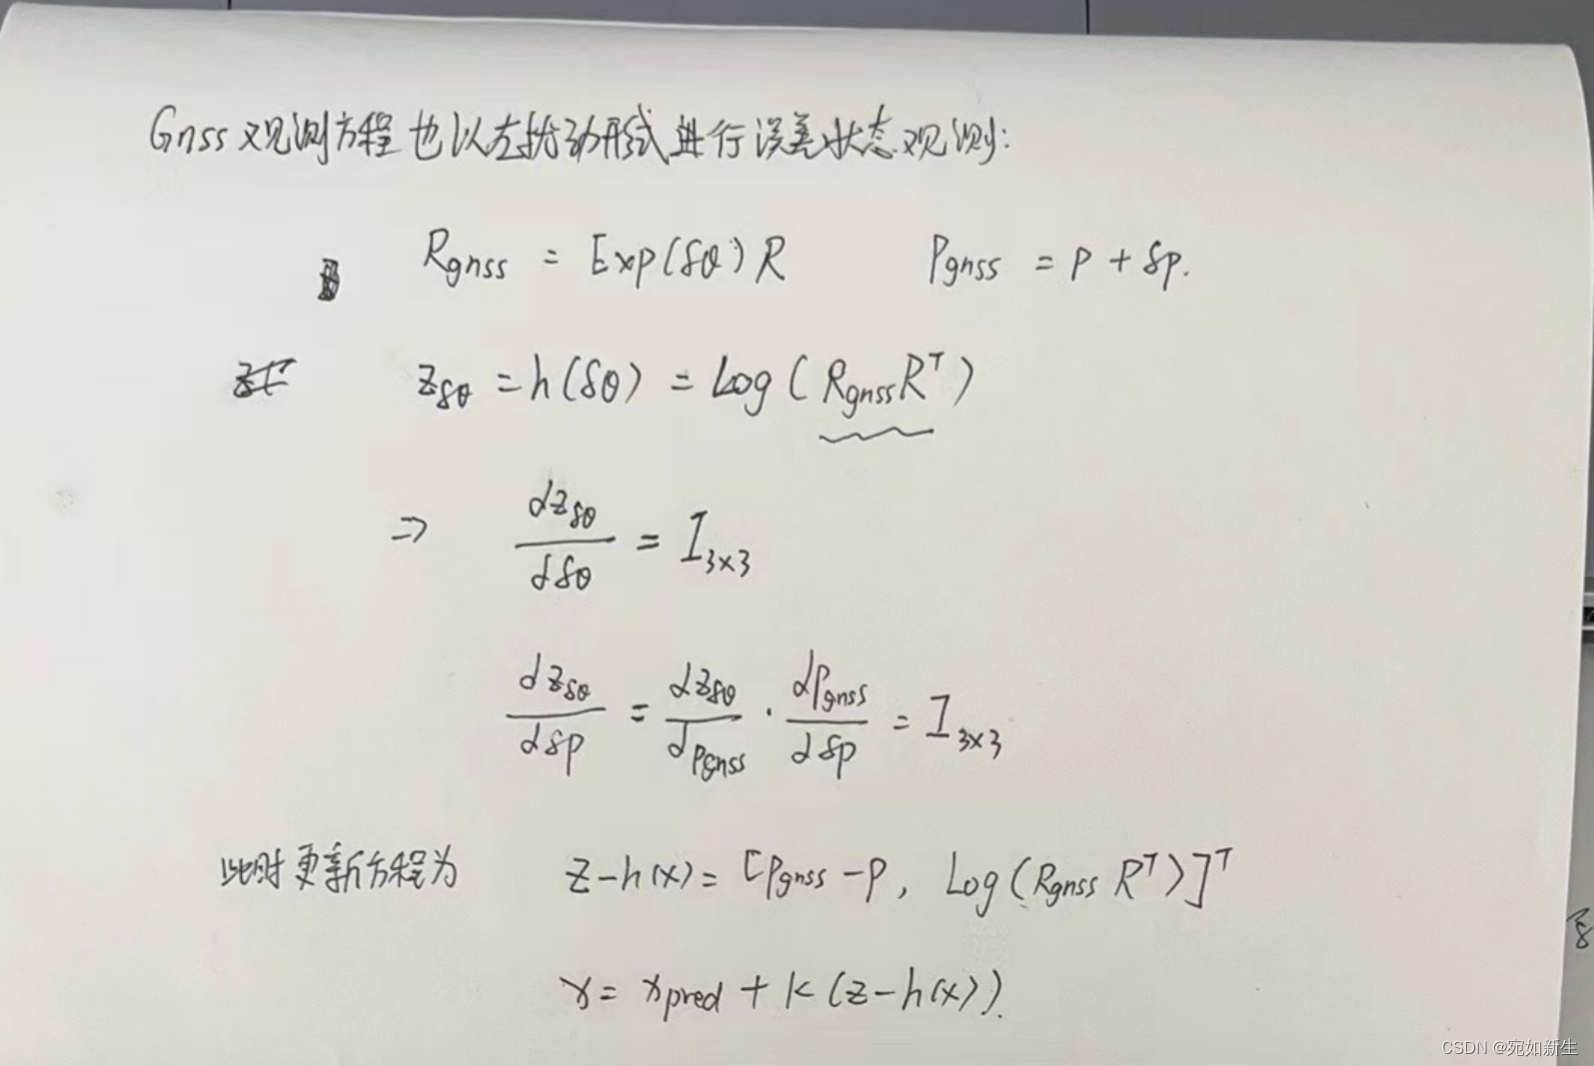 Gnss观测方程也以左扰动形式进行误差状态观测:
Rgnss = Exp(δθ)R Pgnss = P + δp.
zδθ = h(δθ) = Log(RgnssRᵀ)
⇒ dzδθ/dδθ = I3×3
dzδθ/dδp = dzδθ/dPgnss · dPgnss/dδp = I3×3
此时更新方程为 z-h(x) = [Pgnss-P, Log(Rgnss Rᵀ)]ᵀ
x = xpred + K(z-h(x)).
CSDN @宛如新生